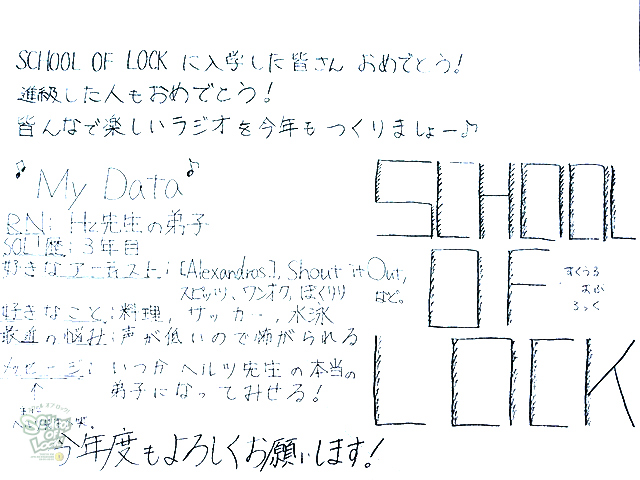 SCHOOL OF LOCK に入学した皆さん おめでとう!
進級した人もおめでとう!
皆んなで楽しいラジオを今年も つくりましょー♪
♪My Data♪
RN: Hz先生の弟子
SOL歴: 3年目
好きなアーティスト: [Alexandros], Shout it Out,
スピッツ、ワンオク、ぼくりり など。
好きなこと: 料理, サッカー, 水泳
最近の悩み: 声が低いので怖がられる
メッセージ: いつか ヘルツ先生の本当の
弟子になってみせる!
今年度もよろしくお願いします!
SCHOOL
OF
LOCK
すくうる
おぶ
ろっく